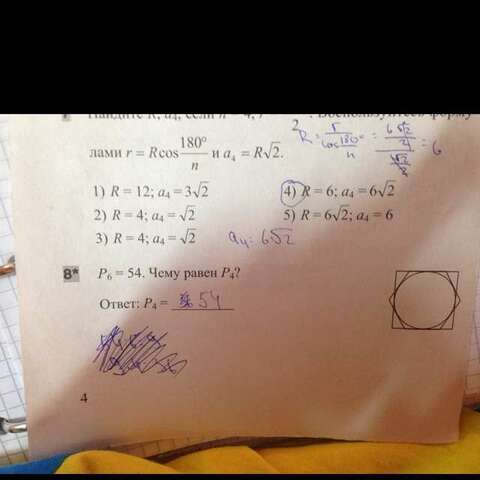 Найдите R, a₄, если
Воспользуйтесь форму
лами r = R cos 180°/n и a₄ = R√2.
1) R = 12; a₄ = 3√2
2) R = 4; a₄ = √2
3) R = 4; a₄ = √2
4) R = 6; a₄ = 6√2
5) R = 6√2; a₄ = 6
a₄ = 6√2
8* P₆ = 54. Чему равен P₄?
Ответ: P₄ = 54
4